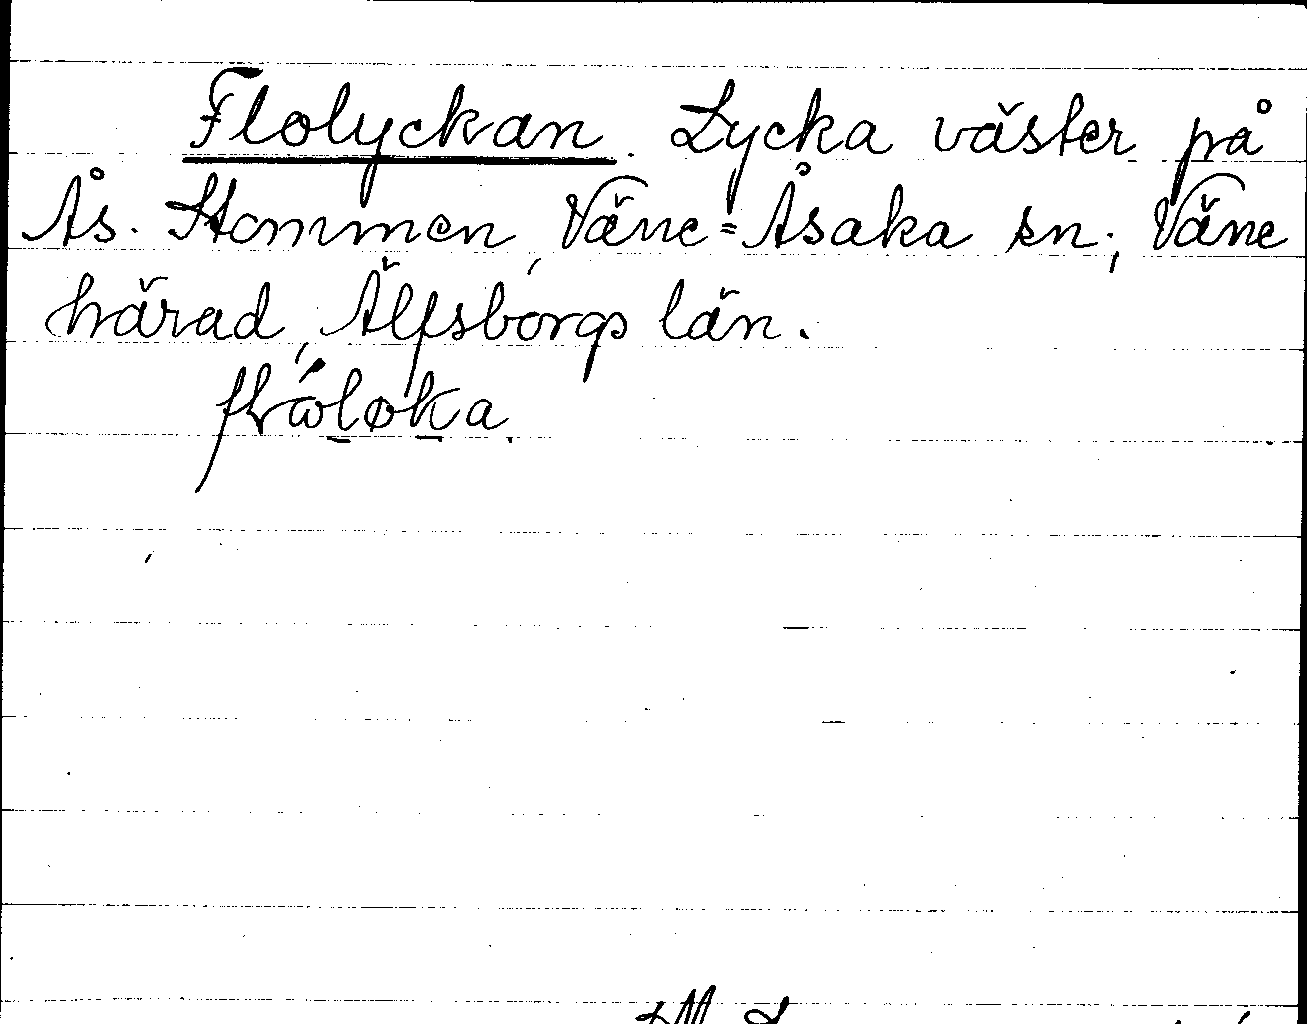 Flolyckan. Lycka väster på
Ås. Stommen, Väne=Åsaka sn., Väne
härad, Älfsborgs län.